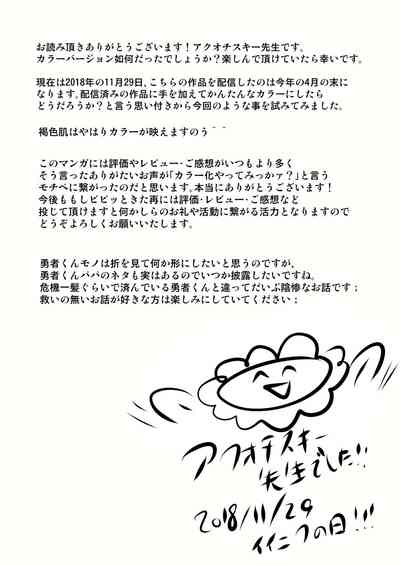 お読み頂きありがとうございます！アクオチスキー先生です。
カラーバージョン如何だったでしょうか？楽しんで頂けていたら幸いです。
現在は2018年の11月29日、こちらの作品を配信したのは今年の4月の末に
なります。配信済みの作品に手を加えてかんたんなカラーにしたら
どうだろうか？と言う思い付きから今回のような事を試みてみました。
褐色肌はやはりカラーが映えますのう＾＾
このマンガには評価やレビュー・ご感想がいつもより多く
そう言ったありがたいお声が「カラー化やってみっかァ？」と言う
モチベに繋がったのだと思います。本当にありがとうございます！
今後ももしビビッときた時には評価・レビュー・ご感想など
投じて頂けますと何かしらのお礼や活動に繋がる活力となりますので
どうぞよろしくお願いいたします。
勇者くんモノは折を見て何か形にしたいと思うのですが、
勇者くんパパのネタも実はあるのでいつか披露したいですね。
危機一髪ぐらいで済んでいる勇者くんと違ってだいぶ陰惨なお話です；
救いの無いお話が好きな方は楽しみにしていてください；
アクオチスキー
先生でした!!
2018/11/29
イイニクの日!!!